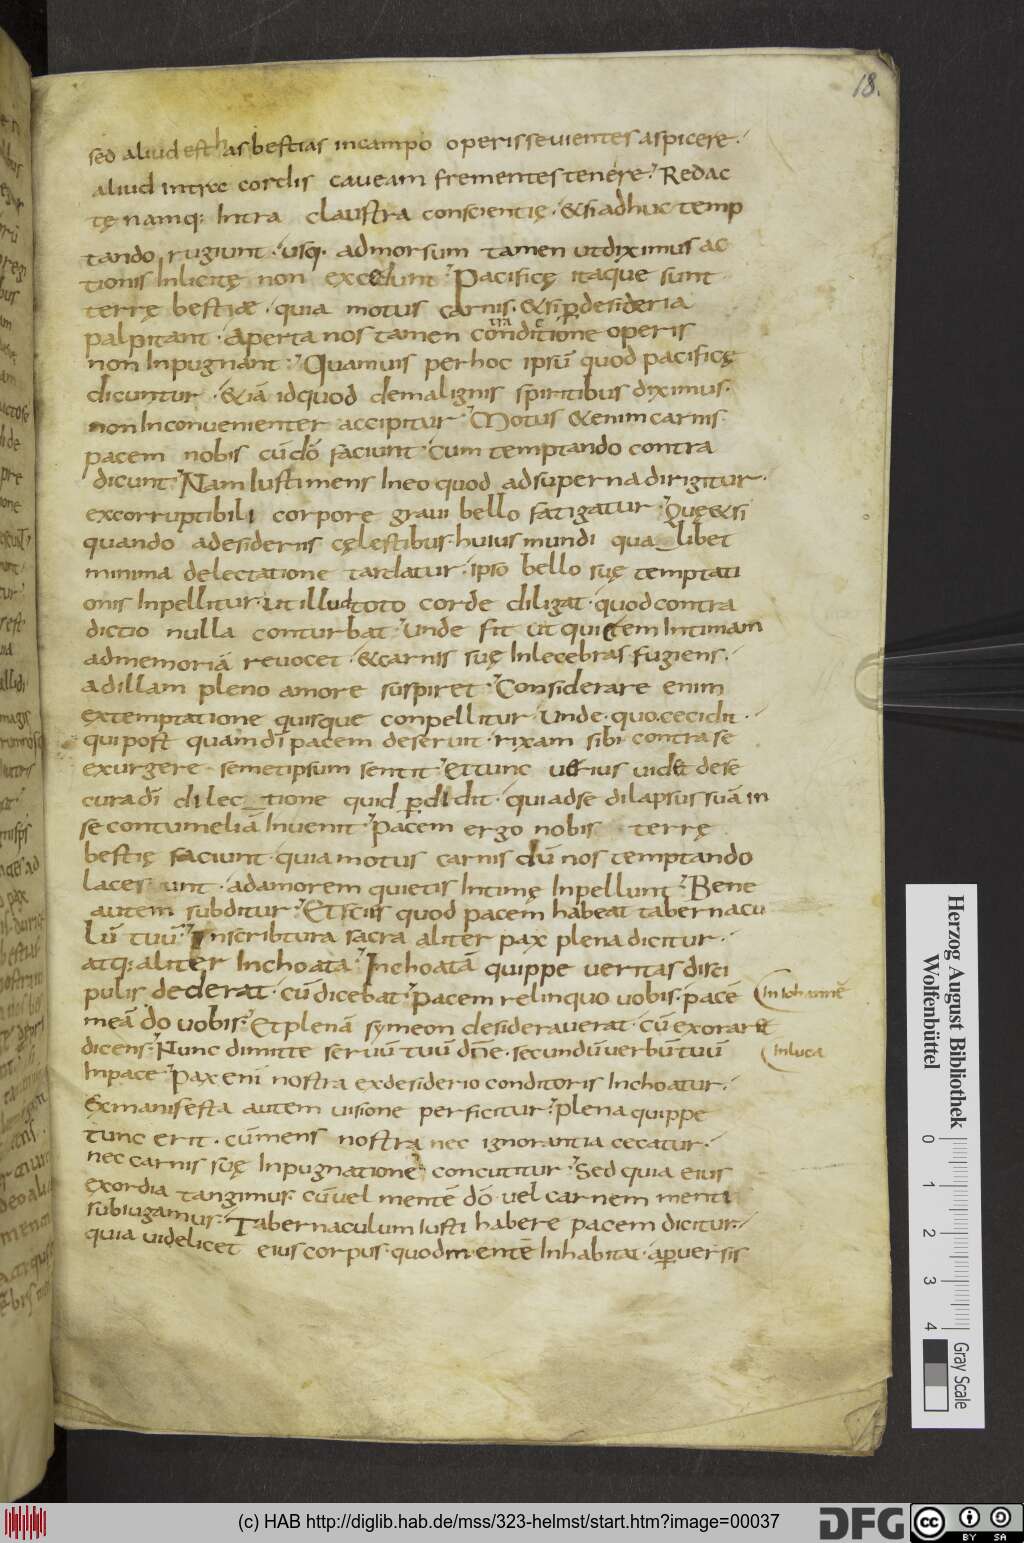 18.
sed aliud est has bestias in campo operis seuientes aspicere·
aliud intra cordis caueam frementes tenere· Redac
tę namq: Intra claustra conscientię· &si adhuc temp
tando rugiunt· usq· ad morsum tamen ut diximus ac
tionis Inlicitę non excedunt· Pacificę itaque sunt
terrę bestiæ· quia motus carnis· &si p desideria
palpitant· Aperta nos tamen conditione operis
non Inpugnant· Quamuis per hoc ipsū quod pacificę
dicuntur· &iā id quod de malignis spiritibus diximus·
non Inconuenienter accipitur· Motus &enim carnis
pacem nobis cū dō faciunt· cum temptando contra
dicunt· Nam Iusti mens In eo quod ad superna dirigitur·
ex corruptibili corpore graui bello fatigatur· Quę &si
quando a desideriis cęlestibus· huius mundi qualibet
minima delectatione tardatur· ipsō bello suę temptati
onis Inpellitur· ut illud toto corde diligat· quod contra
dictio nulla conturbat· Unde fit ut quietem Intimam
ad memoriā reuocet· &carnis suę Inlecebras fugiens·
ad illam pleno amore suspiret· Considerare enim
ex temptatione quisque conpellitur· Unde· quo cecidit·
qui post quam dī pacem deseruit· rixam sibi contra se
exurgere semetipsum sentit· Et tunc uerius uidet de se
cura dī dilectione quid pdidit· qui ad se dilapsus suā in
se contumeliā Inuenit· Pacem ergo nobis terrę
bestię faciunt· quia motus carnis dū nos temptando
lacessunt· ad amorem quietis Intimę Inpellunt· Bene
autem subditur· Et scies quod pacem habeat tabernacu
lū tuū· In scribtura sacra aliter pax plena dicitur·
atq: aliter Inchoata· Inchoatā quippe ueritas disci
pulis dederat· cū dicebat· Pacem relinquo uobis· pacē
In Iohannē
meā do uobis· Et plenā symeon desiderauerat· cū exoraret
dicens· Nunc dimitte seruū tuū dn̄e· secundū uerbū tuū
In luca
In pace· Pax enī nostra ex desiderio conditoris Inchoatur·
Ex manifesta autem uisione perficitur· plena quippe
tunc erit· cū mens nostra nec ignorantia cecatur·
nec carnis suę Inpugnatione concutitur· Sed quia eius
exordia tangimus· cū uel mentē dō· uel carnem menti
subiugamus· Tabernaculum Iusti habere pacem dicitur·
quia uidelicet eius corpus· quod mente Inhabitat· a puersis
Herzog August Bibliothek
Wolfenbüttel
0 1 2 3 4
Gray Scale
(c) HAB http://diglib.hab.de/mss/323-helmst/start.htm?image=00037
DFG
cc BY SA